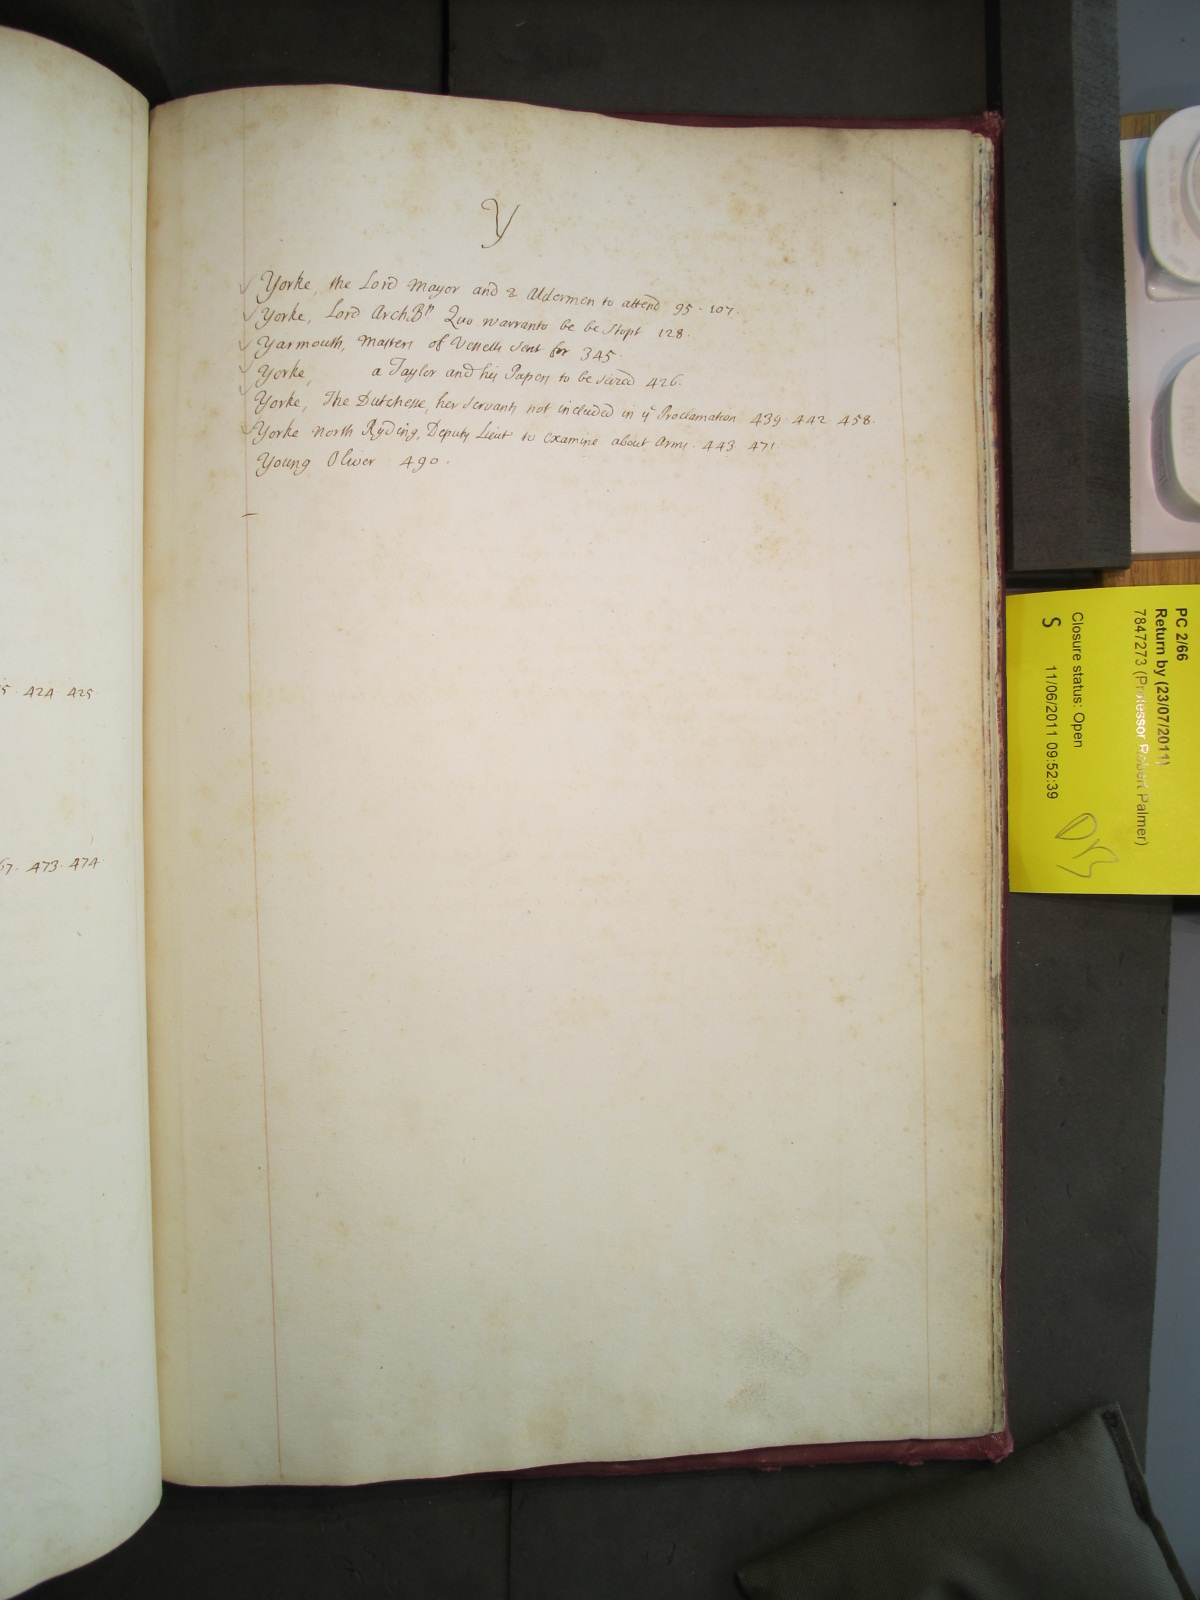 Y
Yorke, the Lord Mayor and 2 Aldermen to attend 95 . 107.
Yorke, Lord Arch.Bp. Quo warranto be be Stopt 128.
Yarmouth, Masters of Vessells sent for 345.
Yorke, a Taylor and his Papers to be seized 426.
Yorke, The Dutchesse, her servants not included in ye Proclamation 439 . 442 . 458.
Yorke North Ryding, Deputy Lieut to examine about Arms . 443 . 471.
Young Oliver 490.
5 . 424 . 425
67 . 473 . 474
PC 2/66
Return by (23/07/2011)
7847273 (Professor Robert Palmer)
Closure status: Open
S 11/06/2011 09:52:39